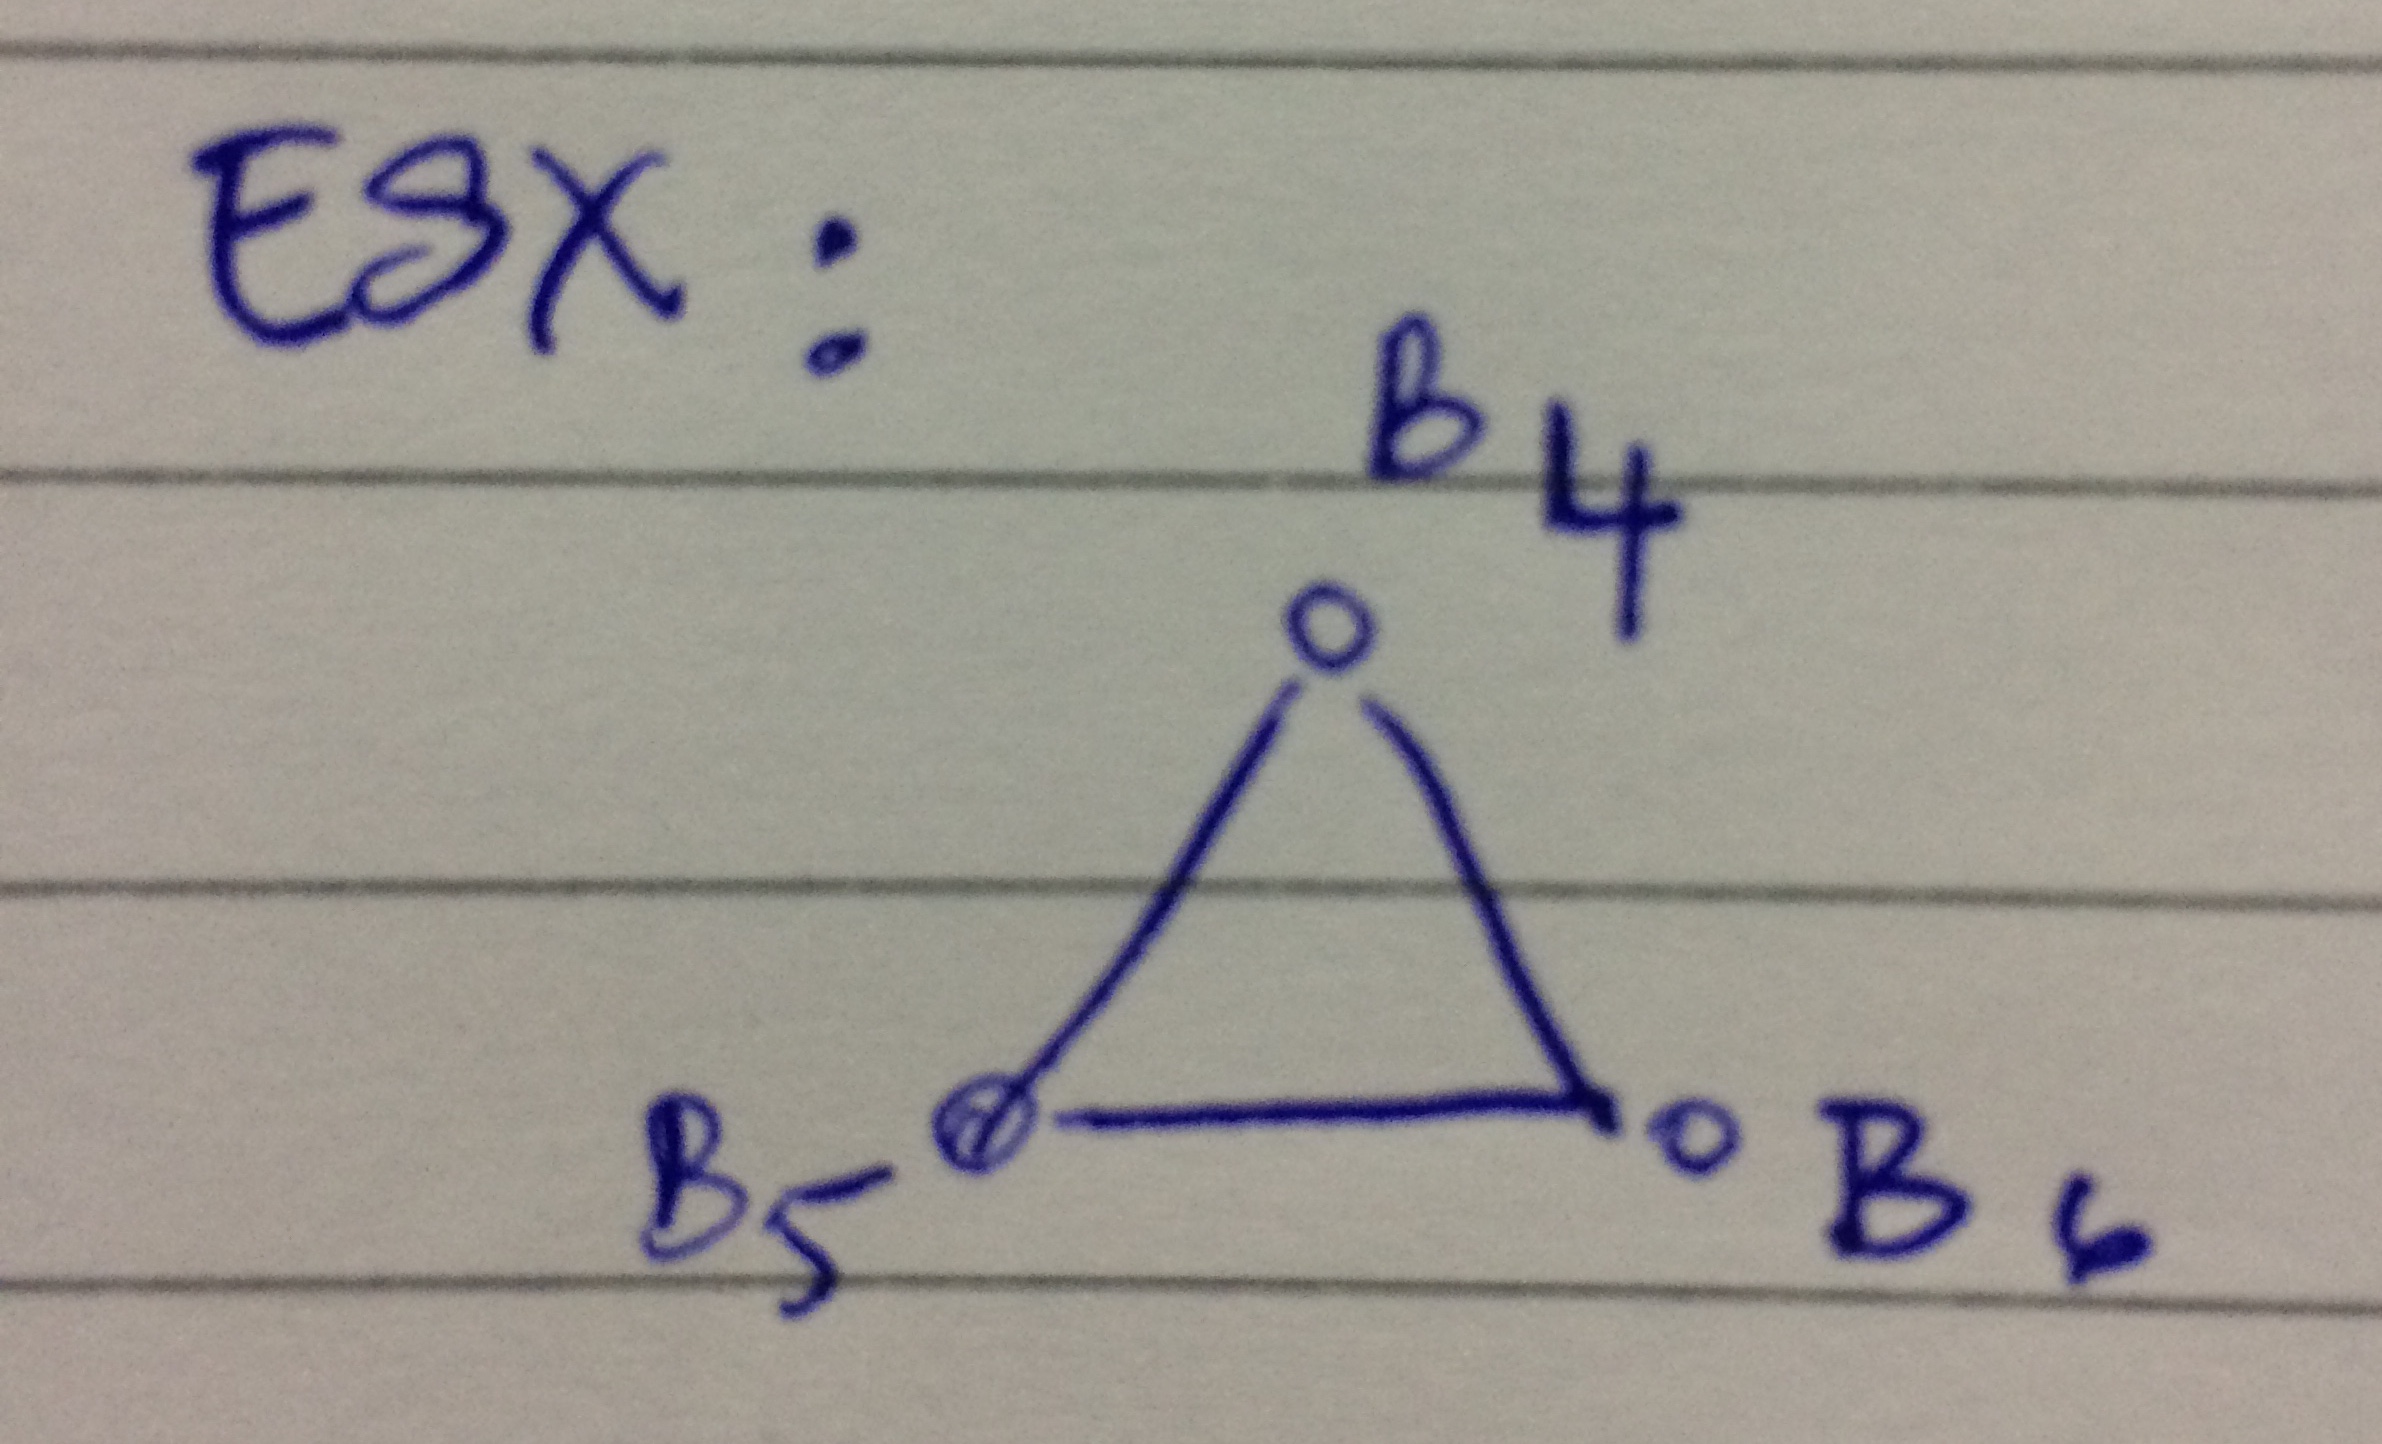 ESX:
B4
B5
B6